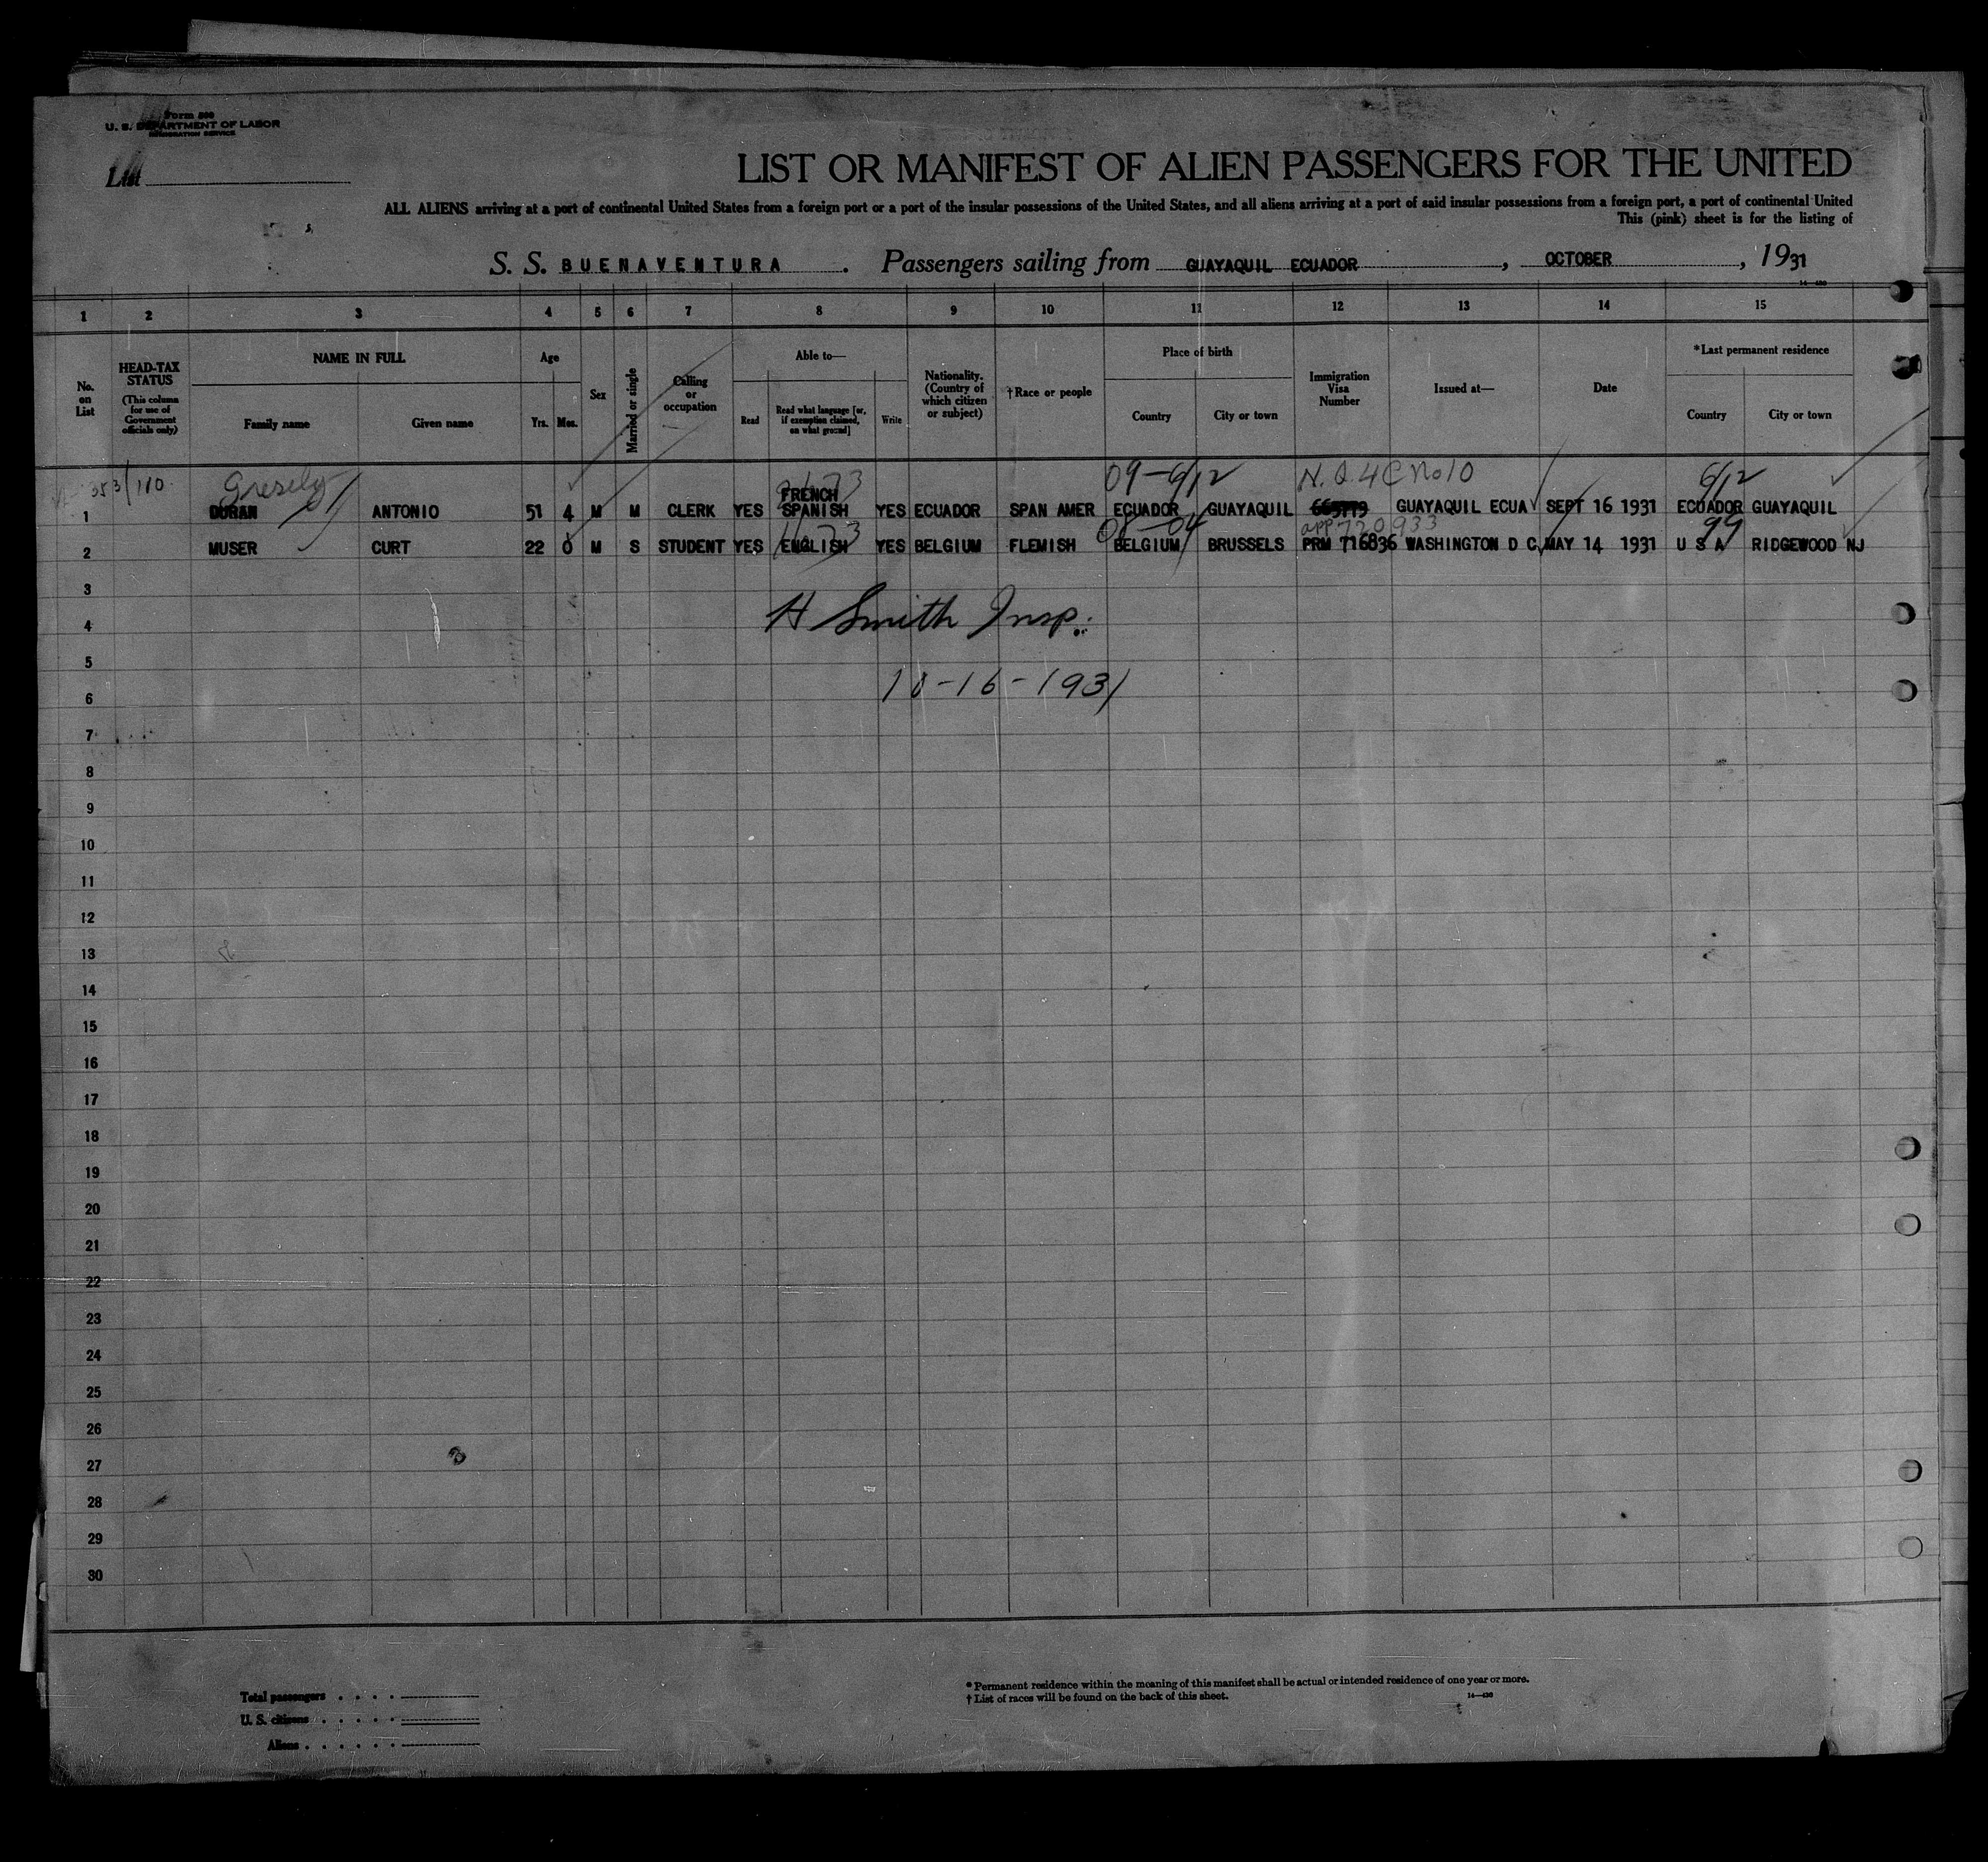 Form 500
U. S. DEPARTMENT OF LABOR
IMMIGRATION SERVICE
List
LIST OR MANIFEST OF ALIEN PASSENGERS FOR THE UNITED
ALL ALIENS arriving at a port of continental United States from a foreign port or a port of the insular possessions of the United States, and all aliens arriving at a port of said insular possessions from a foreign port, a port of continental United
This (pink) sheet is for the listing of
S. S. BUENAVENTURA . Passengers sailing from GUAYAQUIL ECUADOR , OCTOBER , 1931
1 2 3 4 5 6 7 8 9 10 11 12 13 14 15
No. on List
HEAD-TAX STATUS (This column for use of Government officials only)
NAME IN FULL
Family name Given name
Age
Yrs. Mos.
Sex
Married or single
Calling or occupation
Able to—
Read Read what language [or, if exemption claimed, on what ground] Write
Nationality. (Country of which citizen or subject)
†Race or people
Place of birth
Country City or town
Immigration Visa Number
Issued at—
Date
*Last permanent residence
Country City or town
09-6/12 N.Q.4C No10 6/12
FRENCH
1 DURAN ANTONIO 51 4 M M CLERK YES SPANISH YES ECUADOR SPAN AMER ECUADOR GUAYAQUIL GUAYAQUIL ECUA SEPT 16 1931 ECUADOR GUAYAQUIL
app 720933 99
2 MUSER CURT 22 0 M S STUDENT YES ENGLISH YES BELGIUM FLEMISH BELGIUM BRUSSELS PRM 716836 WASHINGTON D C MAY 14 1931 U S A RIDGEWOOD NJ
3
H Smith Insp.
4
5
10-16-1931
6
7
8
9
10
11
12
13
14
15
16
17
18
19
20
21
22
23
24
25
26
27
28
29
30
* Permanent residence within the meaning of this manifest shall be actual or intended residence of one year or more.
† List of races will be found on the back of this sheet.
14—430
Total passengers
U. S. citizens
Aliens